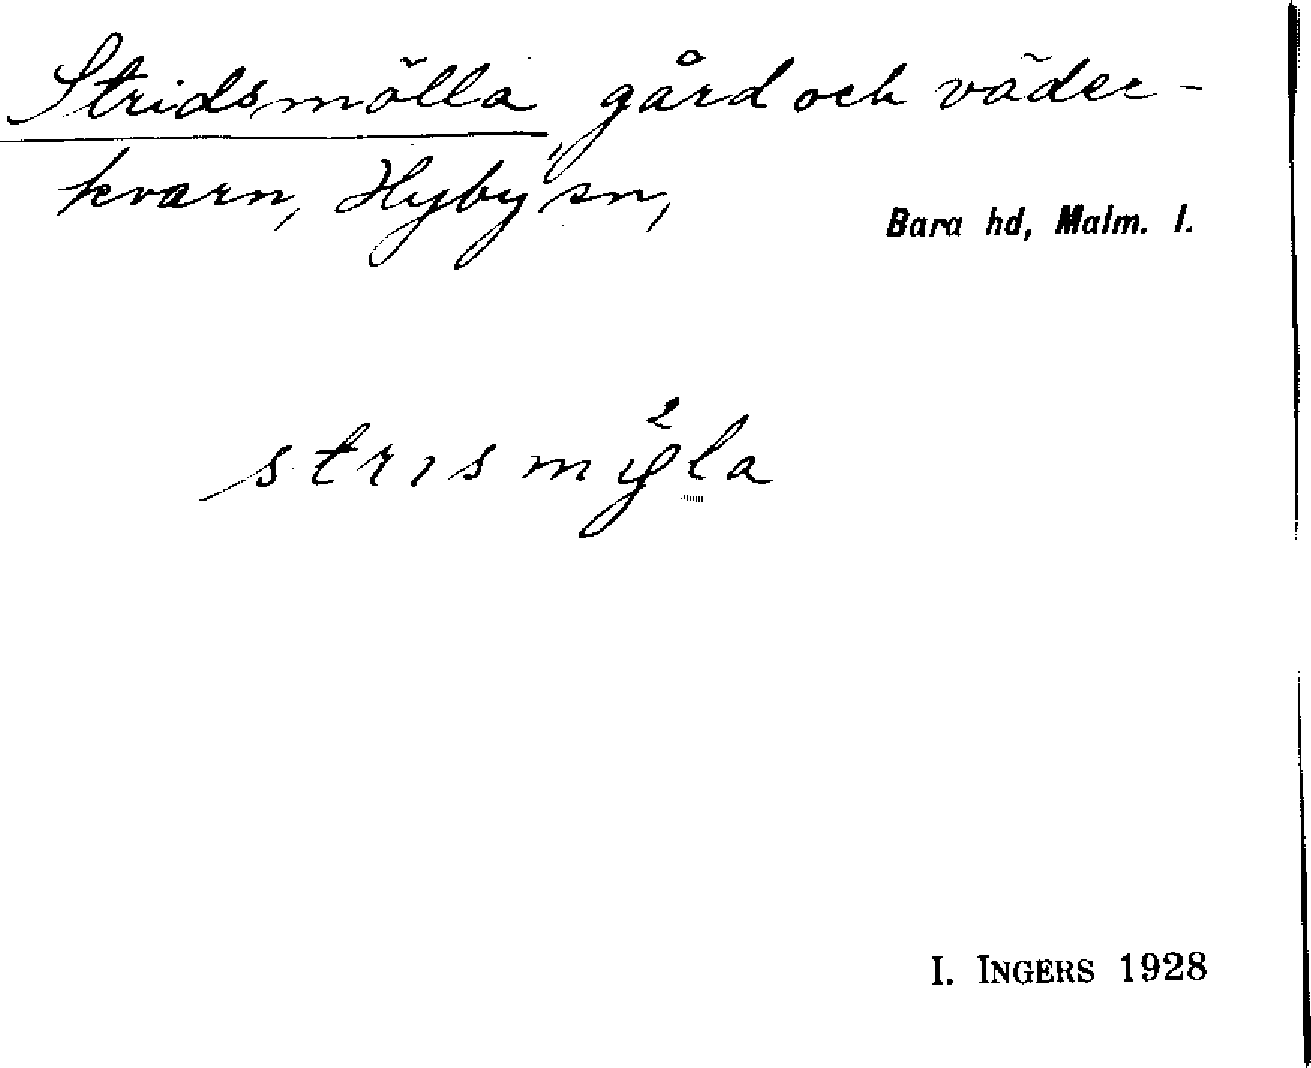 Stridsmölla, gård och väder-
kvarn, Hyby sn,
Bara hd, Malm. l.
I. INGERS 1928